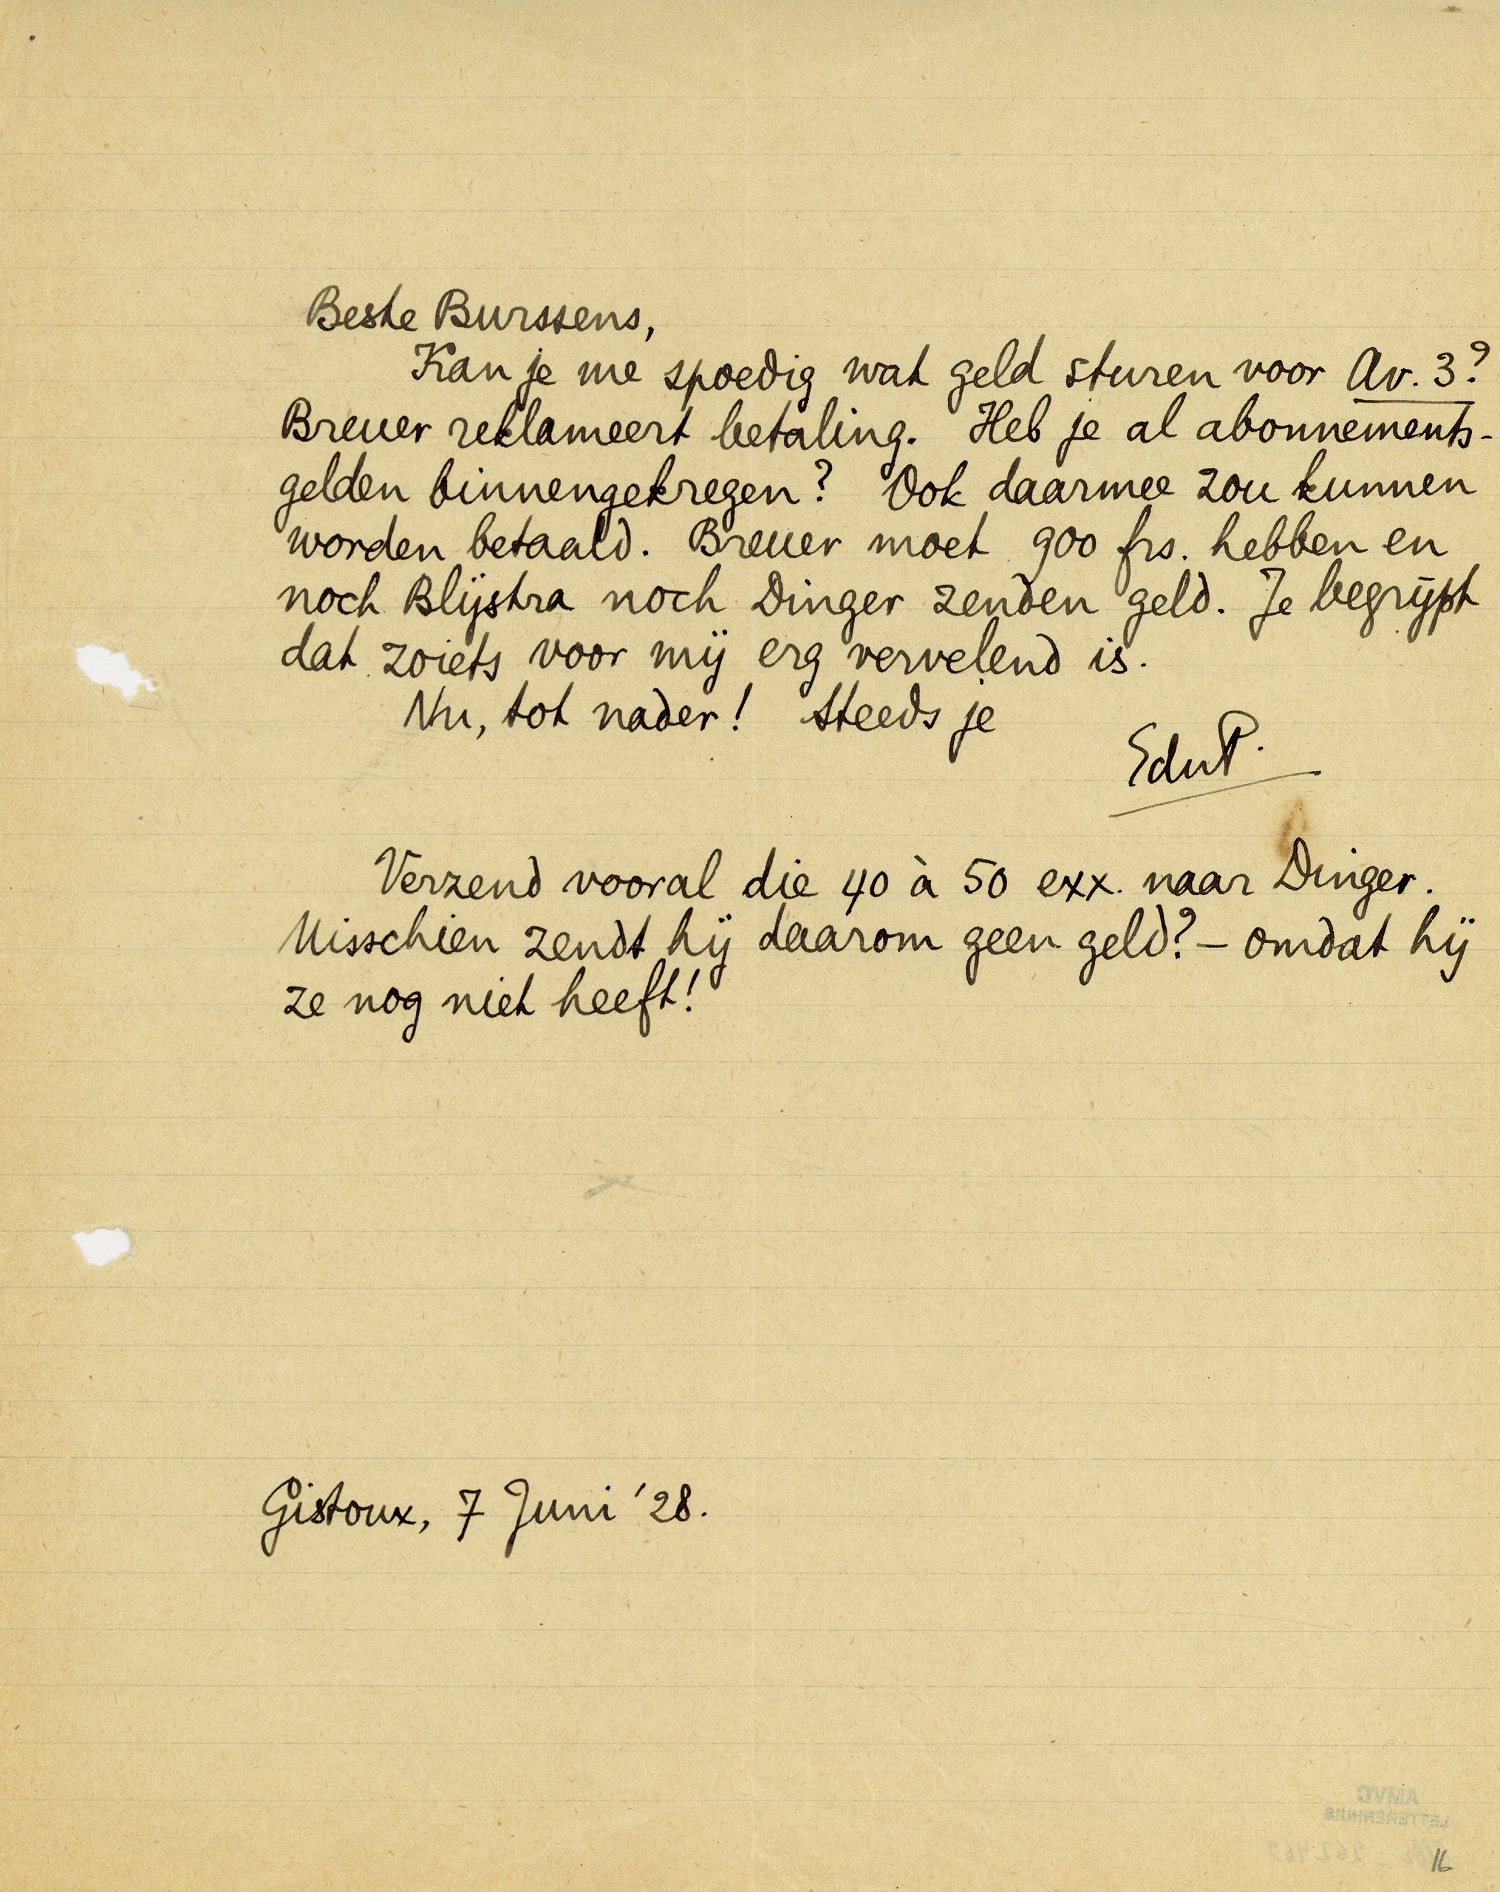 Beste Burssens,
Kan je me spoedig wat geld sturen voor Av. 3?
Breuer reklameert betaling. Heb je al abonnements-
gelden binnengekregen? Ook daarmee zou kunnen
worden betaald. Breuer moet 900 frs. hebben en
noch Blijstra noch Dinger zenden geld. Je begrijpt
dat zoiets voor mij erg vervelend is.
Nu, tot nader! Steeds je
EduP.
Verzend vooral die 40 à 50 exx. naar Dinger.
Misschien zendt hij daarom geen geld? — omdat hij
ze nog niet heeft!
Gistoux, 7 Juni '28.
AMVC
LETTERENHUIS
16